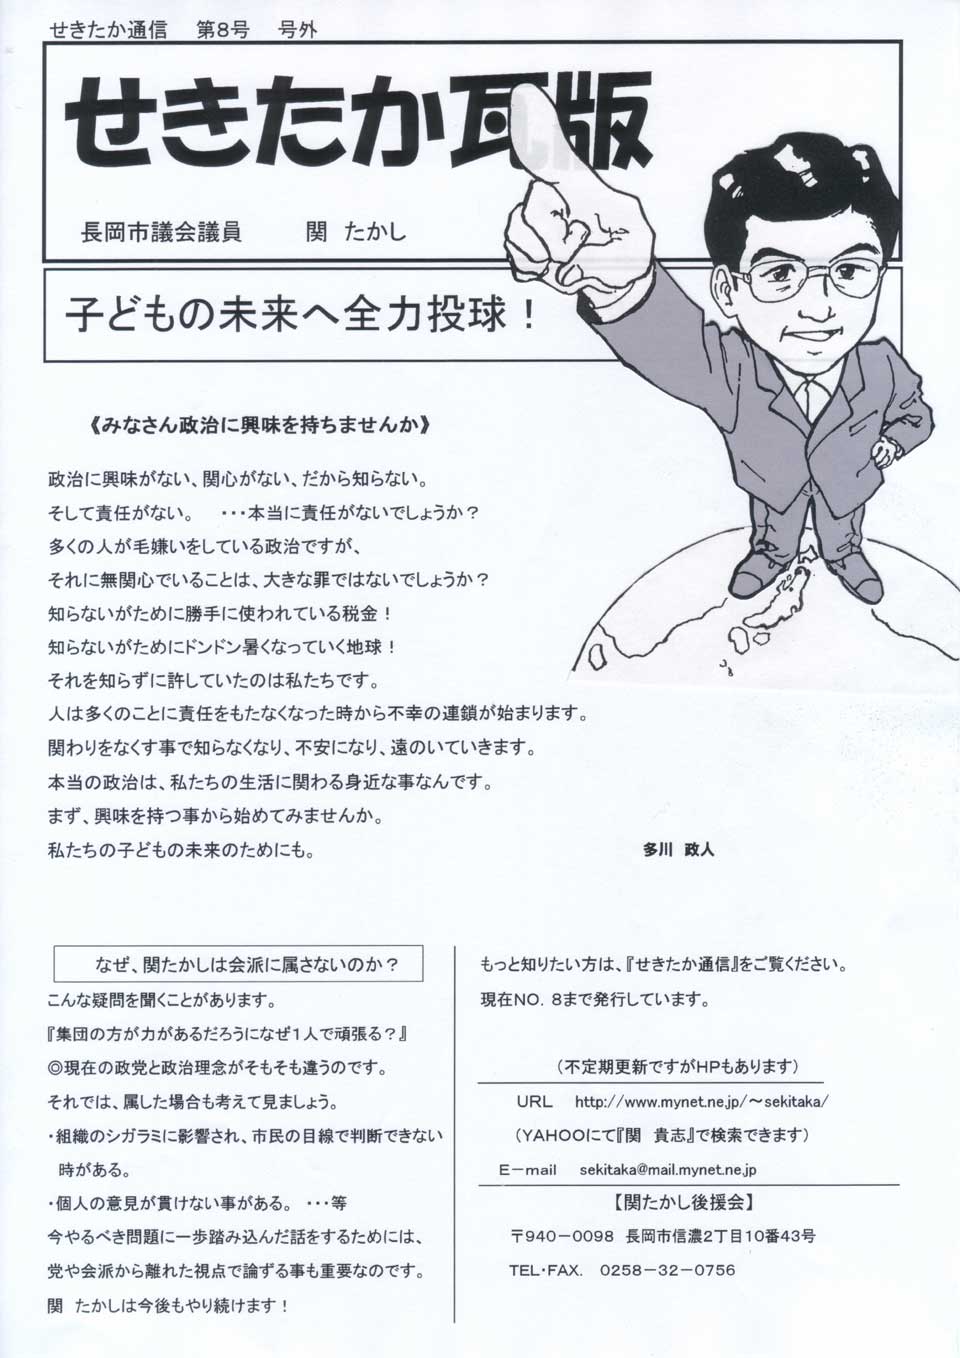 せきたか通信　第８号　号外
せきたか瓦版
長岡市議会議員　　関　たかし
子どもの未来へ全力投球！
《みなさん政治に興味を持ちませんか》
政治に興味がない、関心がない、だから知らない。
そして責任がない。　・・・本当に責任がないでしょうか？
多くの人が毛嫌いをしている政治ですが、
それに無関心でいることは、大きな罪ではないでしょうか？
知らないがために勝手に使われている税金！
知らないがためにドンドン暑くなっていく地球！
それを知らずに許していたのは私たちです。
人は多くのことに責任をもたなくなった時から不幸の連鎖が始まります。
関わりをなくす事で知らなくなり、不安になり、遠のいていきます。
本当の政治は、私たちの生活に関わる身近な事なんです。
まず、興味を持つ事から始めてみませんか。
私たちの子どもの未来のためにも。
多川　政人
なぜ、関たかしは会派に属さないのか？
こんな疑問を聞くことがあります。
『集団の方が力があるだろうになぜ１人で頑張る？』
◎現在の政党と政治理念がそもそも違うのです。
それでは、属した場合も考えて見ましょう。
・組織のシガラミに影響され、市民の目線で判断できない
時がある。
・個人の意見が貫けない事がある。　・・・等
今やるべき問題に一歩踏み込んだ話をするためには、
党や会派から離れた視点で論ずる事も重要なのです。
関　たかしは今後もやり続けます！
もっと知りたい方は、『せきたか通信』をご覧ください。
現在ＮＯ．８まで発行しています。
（不定期更新ですがＨＰもあります）
ＵＲＬ　http://www.mynet.ne.jp/～sekitaka/
（ＹＡＨＯＯにて『関　貴志』で検索できます）
Ｅ－mail　sekitaka@mail.mynet.ne.jp
【関たかし後援会】
〒９４０－００９８　長岡市信濃２丁目１０番４３号
ＴＥＬ・ＦＡＸ．　０２５８－３２－０７５６